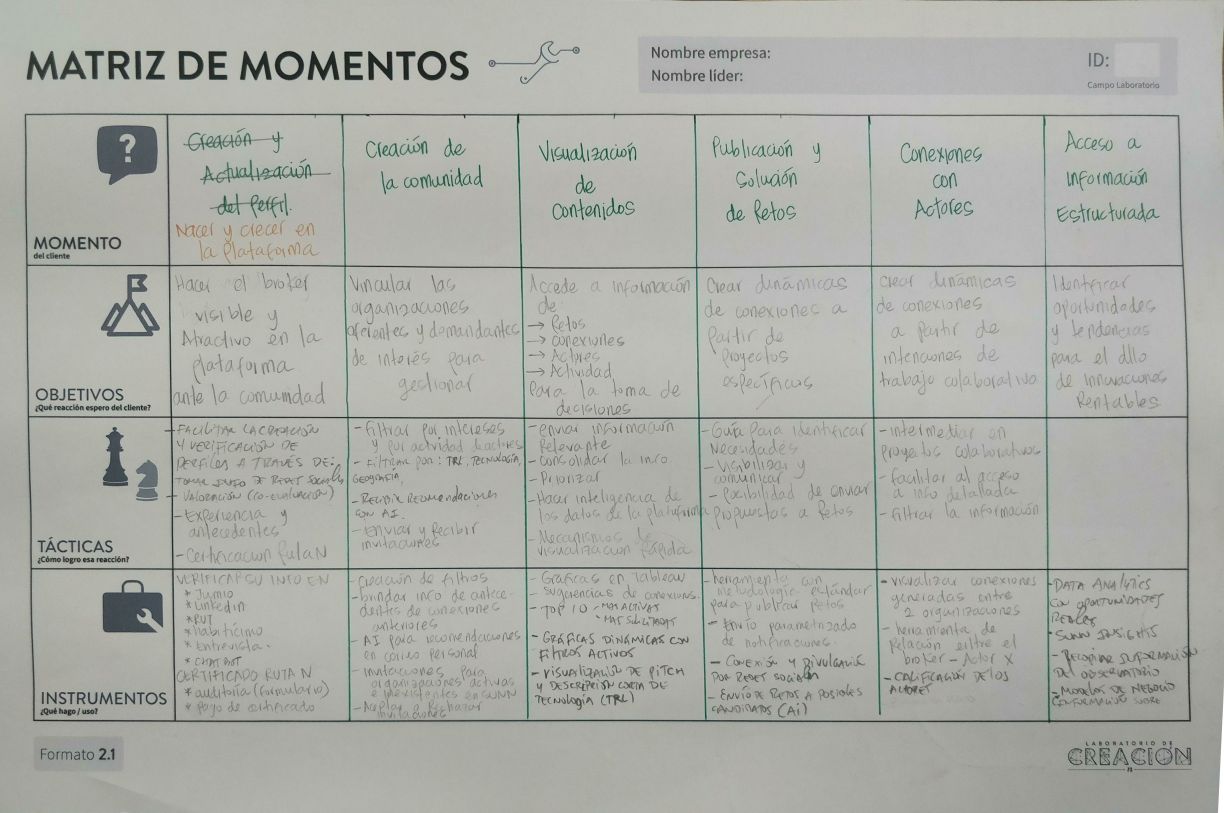 MATRIZ DE MOMENTOS
Nombre empresa:
Nombre líder:
ID:
Campo Laboratorio
?
MOMENTO
del cliente
Creación y
Actualización
del Perfil.
Nacer y crecer en
la Plataforma
Creación de
la comunidad
Visualización
de
Contenidos
Publicación y
Solución
de Retos
Conexiones
con
Actores
Acceso a
Información
Estructurada
OBJETIVOS
¿Qué reacción espero del cliente?
Hacer el broker
visible y
Atractivo en la
plataforma
ante la comunidad
Vincular las
organizaciones
oferentes y demandantes
de interés para
gestionar
Accede a información
de:
→ Retos
→ conexiones
→ Actores
→ Actividad
Para la toma de
decisiones
Crear dinámicas
de conexiones a
Partir de
Proyectos
específicos
Crear dinámicas
de conexiones
a partir de
intenciones de
trabajo colaborativo
Identificar
oportunidades
y tendencias
para el dllo
de innovaciones
Rentables.
TÁCTICAS
¿Cómo logro esa reacción?
- FACILITAR LA CREACIÓN
Y VERIFICACIÓN DE
PERFILES A TRAVÉS DE:
TOMAR INFO DE REDES SOCIALES
- Valoración (co-evaluación)
- Experiencia y
antecedentes
- Certificación Ruta N
- Filtrar por intereses
y por actividad de actores
- FILTRAR POR: TRL, TECNOLOGÍA,
GEOGRAFÍA,
- RECIBIR RECOMENDACIONES
CON AI.
- Enviar y Recibir
invitaciones
- enviar información
Relevante
- consolidar la info
- Priorizar
- Hacer inteligencia de
los datos de la plataforma
- Mecanismos de
visualización Rápida
- Guía Para identificar
Necesidades
- Visibilizar y
comunicar
- Posibilidad de enviar
Propuestas a Retos
- intermediar en
proyectos colaborativos
- facilitar el acceso
a info detallada
- filtrar la información
INSTRUMENTOS
¿Qué hago / uso?
VERIFICAR SU INFO EN
* Jumio
* Linkedin
* RUT
* Entrevista.
* CHAT BOT
CERTIFICADO RUTA N
* auditoría (formulario)
* Pago de certificado
- creación de filtros
- brindar info de antece-
dentes de conexiones
anteriores
- AI para recomendaciones
en correo personal
- Invitaciones para
organizaciones activas
e inexistentes en SUNN
- Aceptar o Rechazar
invitaciones
- Graficas en Tableau
- sugerencias de conexiones.
- TOP 10 - MAS ACTIVAS
- GRÁFICAS DINÁMICAS CON
FILTROS ACTIVOS
- VISUALIZACIÓN DE PITCH
Y DESCRIPCIÓN CORTA DE
TECNOLOGÍA (TRL)
- herramienta con
metodología estándar
para publicar retos
- Envío parametrizado
de notificaciones.
- CONEXIÓN Y DIVULGACIÓN
POR REDES SOCIALES
- ENVÍO DE RETOS A POSIBLES
CANDIDATOS (AI)
- visualizar conexiones
generadas entre
2 organizaciones
- herramienta de
Relación entre el
broker - Actor X
- CALIFICACIÓN DE LOS
ACTORES
- DATA ANALYTICS
CON OPORTUNIDADES
REALES
- SUNN INSIGHTS
- RECOPILAR INFORMACIÓN
DEL OBSERVATORIO
- MODELOS DE NEGOCIO
Formato 2.1
LABORATORIO DE
CREACIÓN